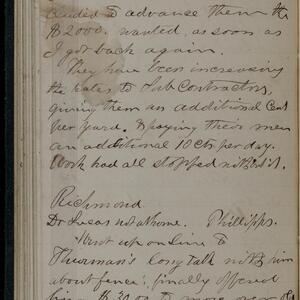 cluded to advance them the
$2000. wanted, as soon as
I got back again.
They have been increasing
the rates to Sub Contractors,
giving them an additional Cent
per yard. & paying their men
an additional 10 Cts per day.
Work had all stopped
Richmond
Dr Lucas not at home. Phillipps.
Went up on line to
Thurman's Long talk with him
about fence. finally offered
him $